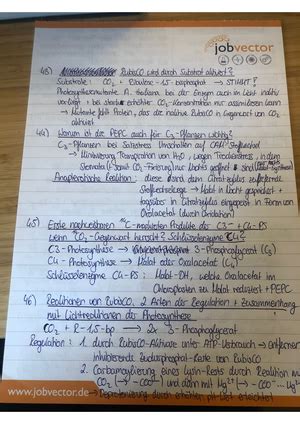 jobvector
43) RubisCO wird durch Substrat aktiviert?
Substrate: CO₂ + Ribulose-1,5-bisphosphat → STIMMT?
Photosynthesemutante A. thaliana bei der Enzym auch im Licht inaktiv
vorliegt + bei stark erhöhter CO₂-Konzentration nur assimilieren kann
→ Mutante fehlt Protein, das die inaktive RubisCO in Gegenwart von CO₂
aktiviert
44) Warum ist die PEPC auch für C3-Pflanzen wichtig?
C3-Pflanzen bei Salzstress Umschalten auf CAM-Stoffwechsel
→ Minimierung Transpiration von H₂O, wegen Trockenstress, in dem
Stomata (+ somit CO₂-Fixierung) nur Nachts geöffnet sind
Anaplerotische Reaktion: diese wird dann Citratzyklus zugeführt
Stoffwechselwege → Malat in Nacht gespeichert +
tagsüber in Citratzyklus eingespeist in Form von
Oxalacetat (durch Oxidation)
45) Erste nachweisbaren ¹⁴C-markierten Produkte des C3- + C4-PS
wenn CO₂-Gegenwart herrscht? Schlüsselenzyme C4?
C3-Photosynthese → 3-Phosphoglycerat (C3)
C4-Photosynthese → Malat oder Oxalacetat (C4)
Schlüsselenzyme C4-PS: Malat-DH, welche Oxalacetat im
Chloroplasten zu Malat reduziert + PEPC
46) Reaktionen von RubisCO, 2 Arten der Regulation + Zusammenhang
mit Lichtreaktionen der Photosynthese
CO₂ + R-1,5-bp → 2x 3-Phosphoglycerat
Regulation: 1. durch RubisCO-Aktivase unter ATP-Verbrauch → entfernen
inhibierende Zuckerphosphat-Reste von RubisCO
2. Carbamoylierung eines Lysin-Rests durch Reaktion mit
CO₂ (→ -COO⁻) und dann mit Mg²⁺ (→ -COO⁻... Mg²⁺)
→ Deprotonierung durch erhöhten pH-Wert erleichtert
www.jobvector.de